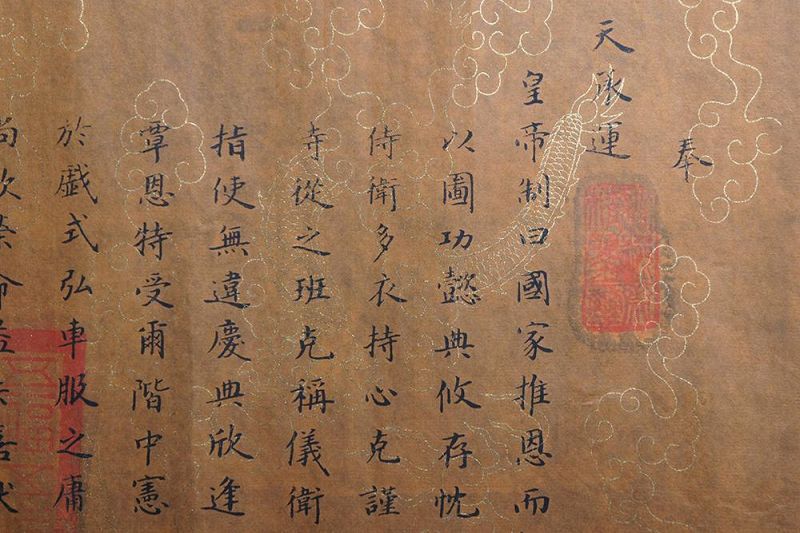 奉
天承運
皇帝制曰國家推恩而
以圖功懿典攸存忱
侍衛多衣持心克謹
寺從之班克稱儀衛
指使無違慶典欣逢
覃恩特受爾階中憲
於戲式弘車服之庸
尚命益